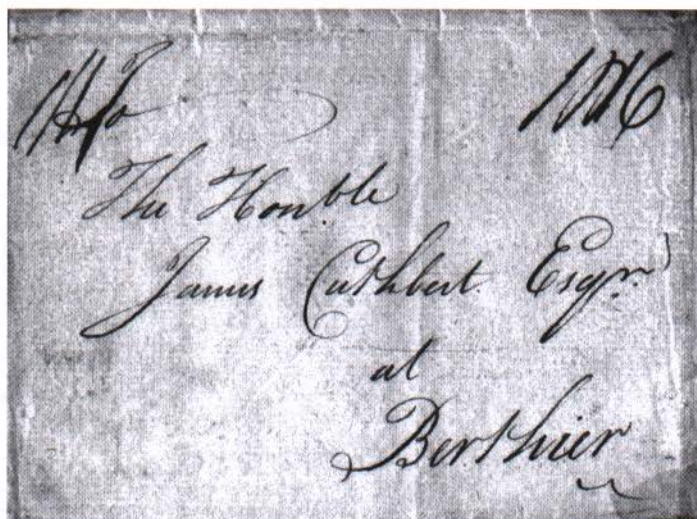 To
The Honble
James Cuthbert Esqr.
at
Berthier